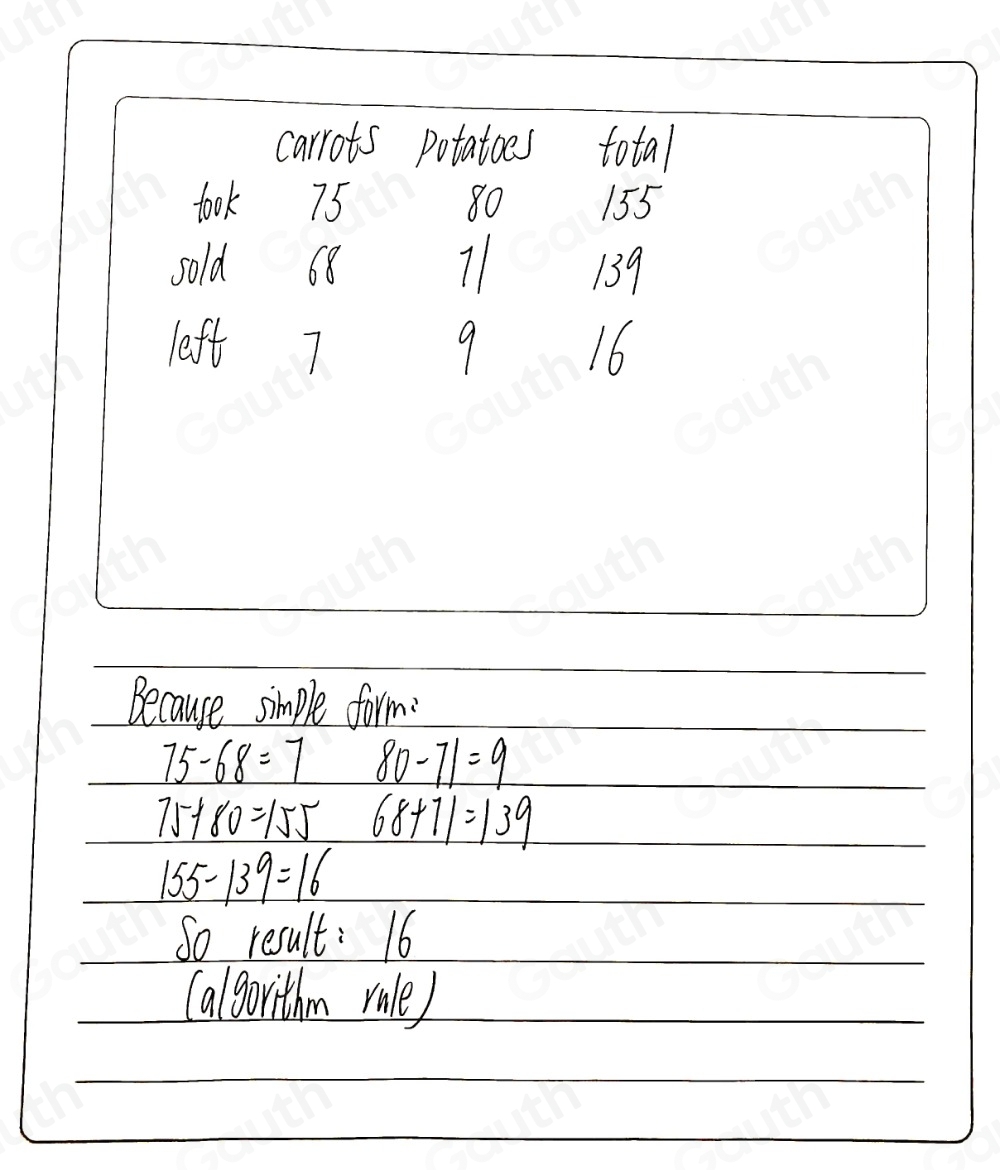 carrots potatoes total
took 75 80 155
sold 68 71 139
left 7 9 16
Because simple form:
75-68=7 80-71=9
75+80=155 68+71=139
155-139=16
So result: 16
(algorithm rule)
Gauth